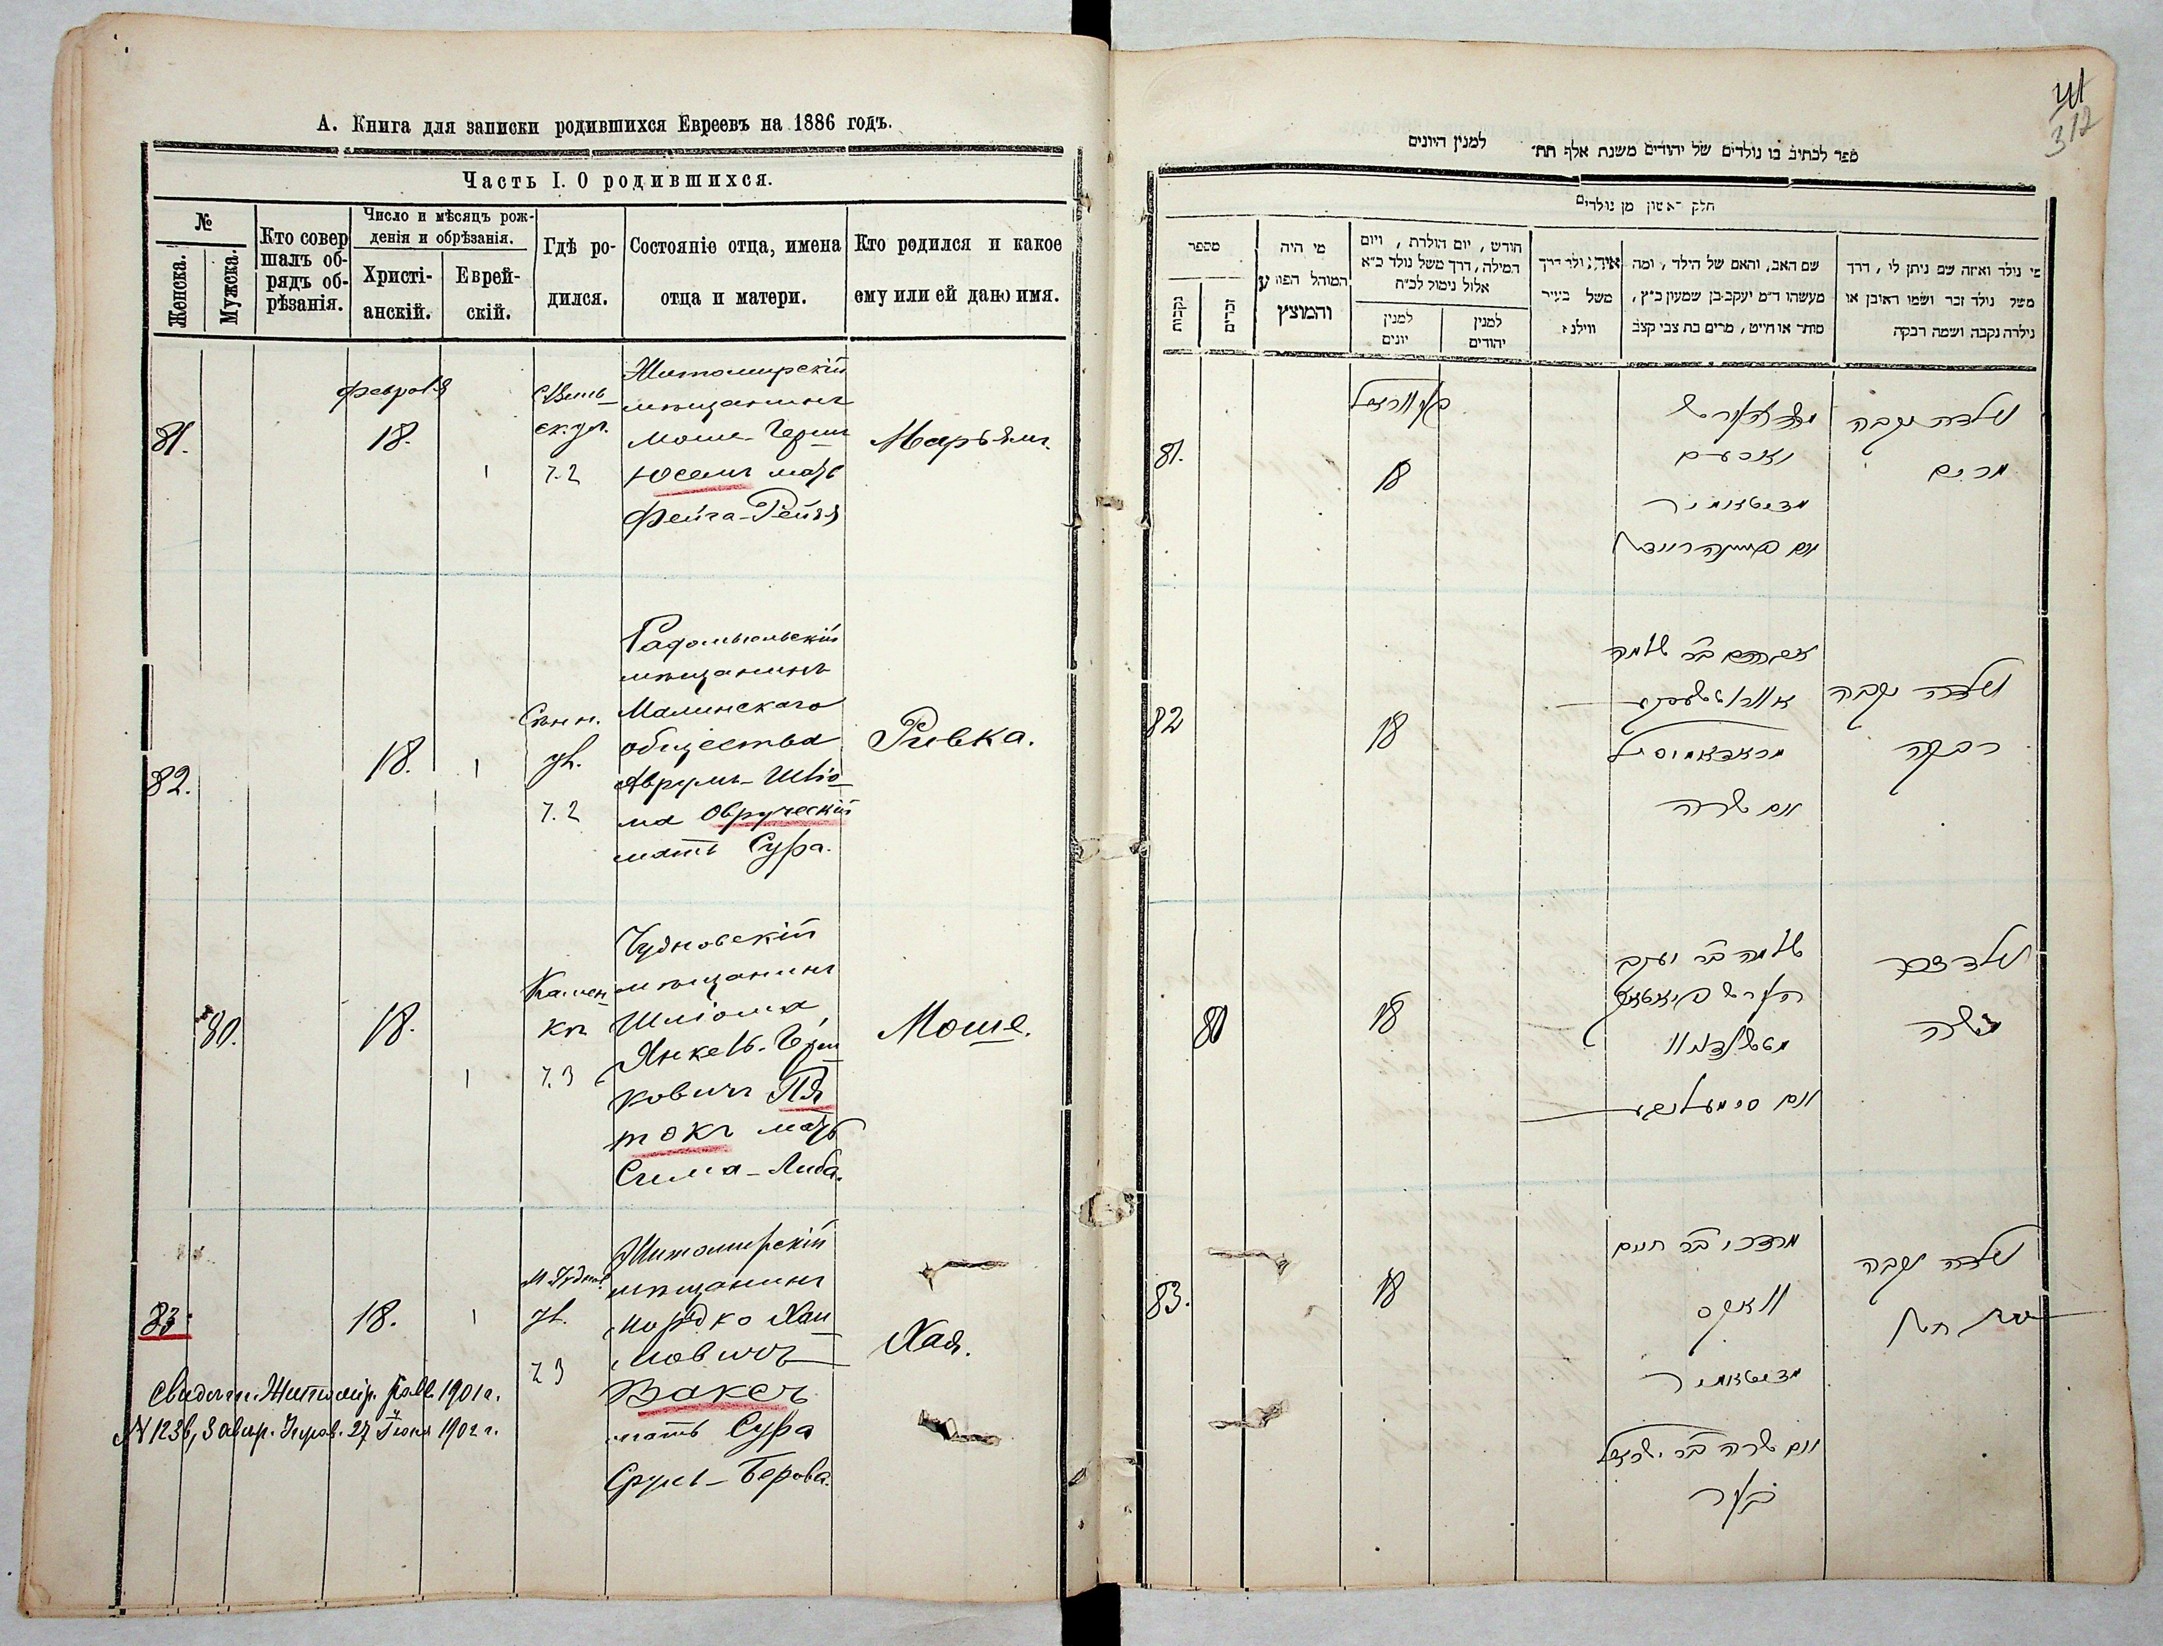 А. Книга для записки родившихся Евреевъ на 1886 годъ.
Часть I. О родившихся.
№
Женска.
Мужска.
Кто совер
шалъ об-
рядъ об-
рѣзанія.
Число и мѣсяцъ рож-
денія и обрѣзанія.
Христі-
анскій.
Еврей-
скій.
Гдѣ ро-
дился.
Состояніе отца, имена
отца и матери.
Кто родился и какое
ему или ей дано имя.
81.
18.
ч. 2
Житомирскій
мѣщанинъ
Моше-Герш
Юсемъ мать
Фейга-Рейзя
Марьямъ.
82.
18.
ул.
ч. 2
Радомысльскій
мѣщанинъ
Малинскаго
общества
Аврумъ-Шліо-
ма Овручскій
мать Сура.
Ривка.
80.
18.
Камен-
ка
ч. 3
Чудновскій
мѣщанинъ
Шліома
Янкель-Герш
ковичъ Пя
токъ мать
Сима-Либа.
Моше.
83.
18.
ул.
ч 3
Житомирскій
мѣщанинъ
Мордко Хаи
мовичъ
Ваксъ
мать Сура
Сруль-Берова.
Хая.
Свидѣт. Житомір. 1901 г.
№ 1236, 27 Іюня 1902 г.
41
312
ספר לכתיב בו נולדים של יהודים משנת אלף תת׳ למנין היונים
חלק ראשון מן נולדים
מספר
נקבות
זכרים
מי היה
המוהל הפוע
והמוצץ
חודש, יום הולדת, ויום
המילה, דרך משל נולד כ״א
אלול נימול לכ״ח
למנין
יונים
למנין
יהודים
איה נולד דרך
משל בעיר
ווילנא
שם האב, והאם של הילד, ומה
מעשהו ד״מ יעקב בן שמעון כ״ץ,
סוחר או חייט, מרים בת צבי קצב
מי נולד ואיזה שם ניתן לו, דרך
משל נולד זכר ושמו ראובן או
נולדה נקבה ושמה רבקה
81.
18
מזיטאמיר
נולדה נקבה
מרים
82
18
אברהם בר שלמה
מראדאמיסל
ואם שרה
נולדה נקבה
רבקה
80
18
שלמה בר יעקב
נולד זכר
משה
83.
18
מרדכי בר חיים
וואקס
מזיטאמיר
ואם שרה בר ישראל
בער
נולדה נקבה